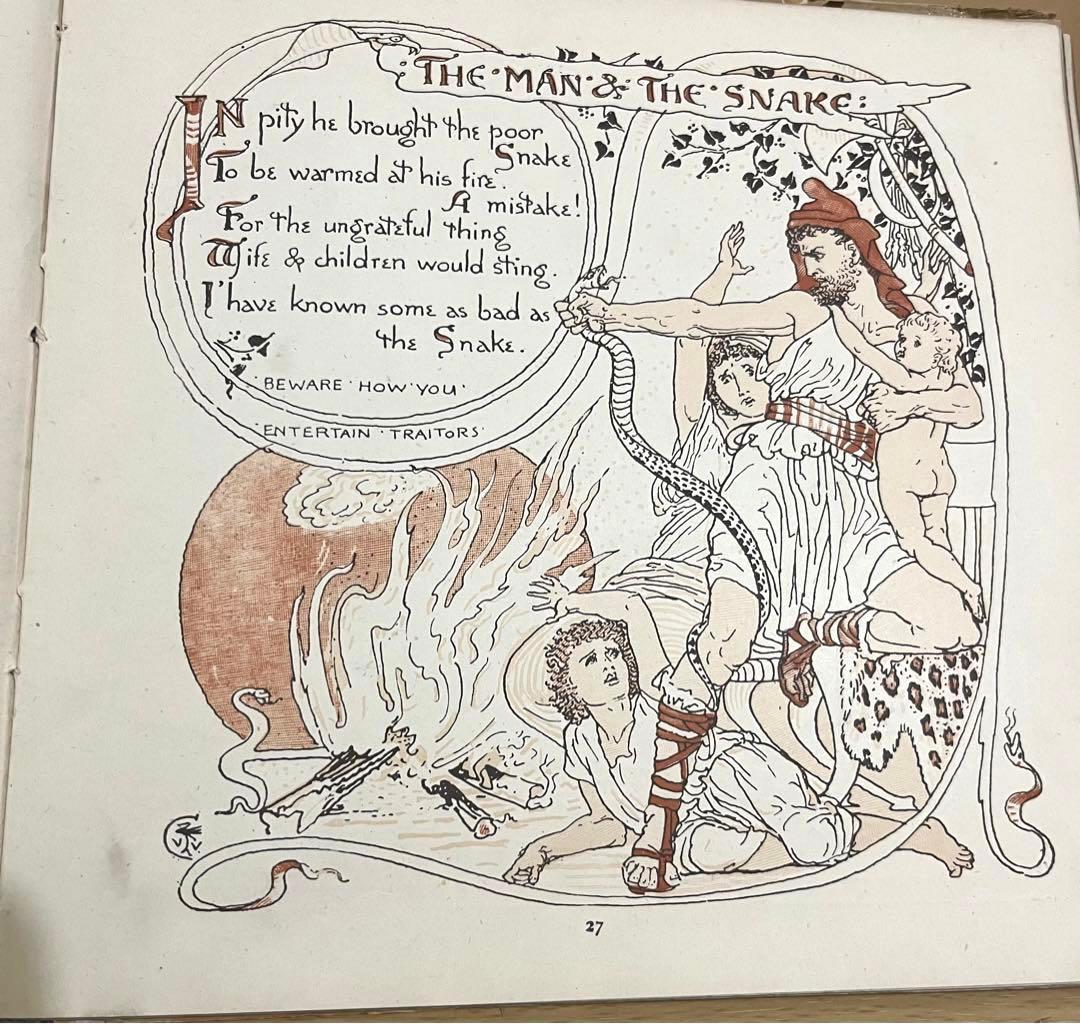 THE·MAN·&·THE·SNAKE:
IN pity he brought the poor
Snake
To be warmed at his fire.
A mistake!
For the ungrateful thing
Wife & children would sting.
I have known some as bad as
the Snake.
BEWARE·HOW·YOU·
ENTERTAIN·TRAITORS
27